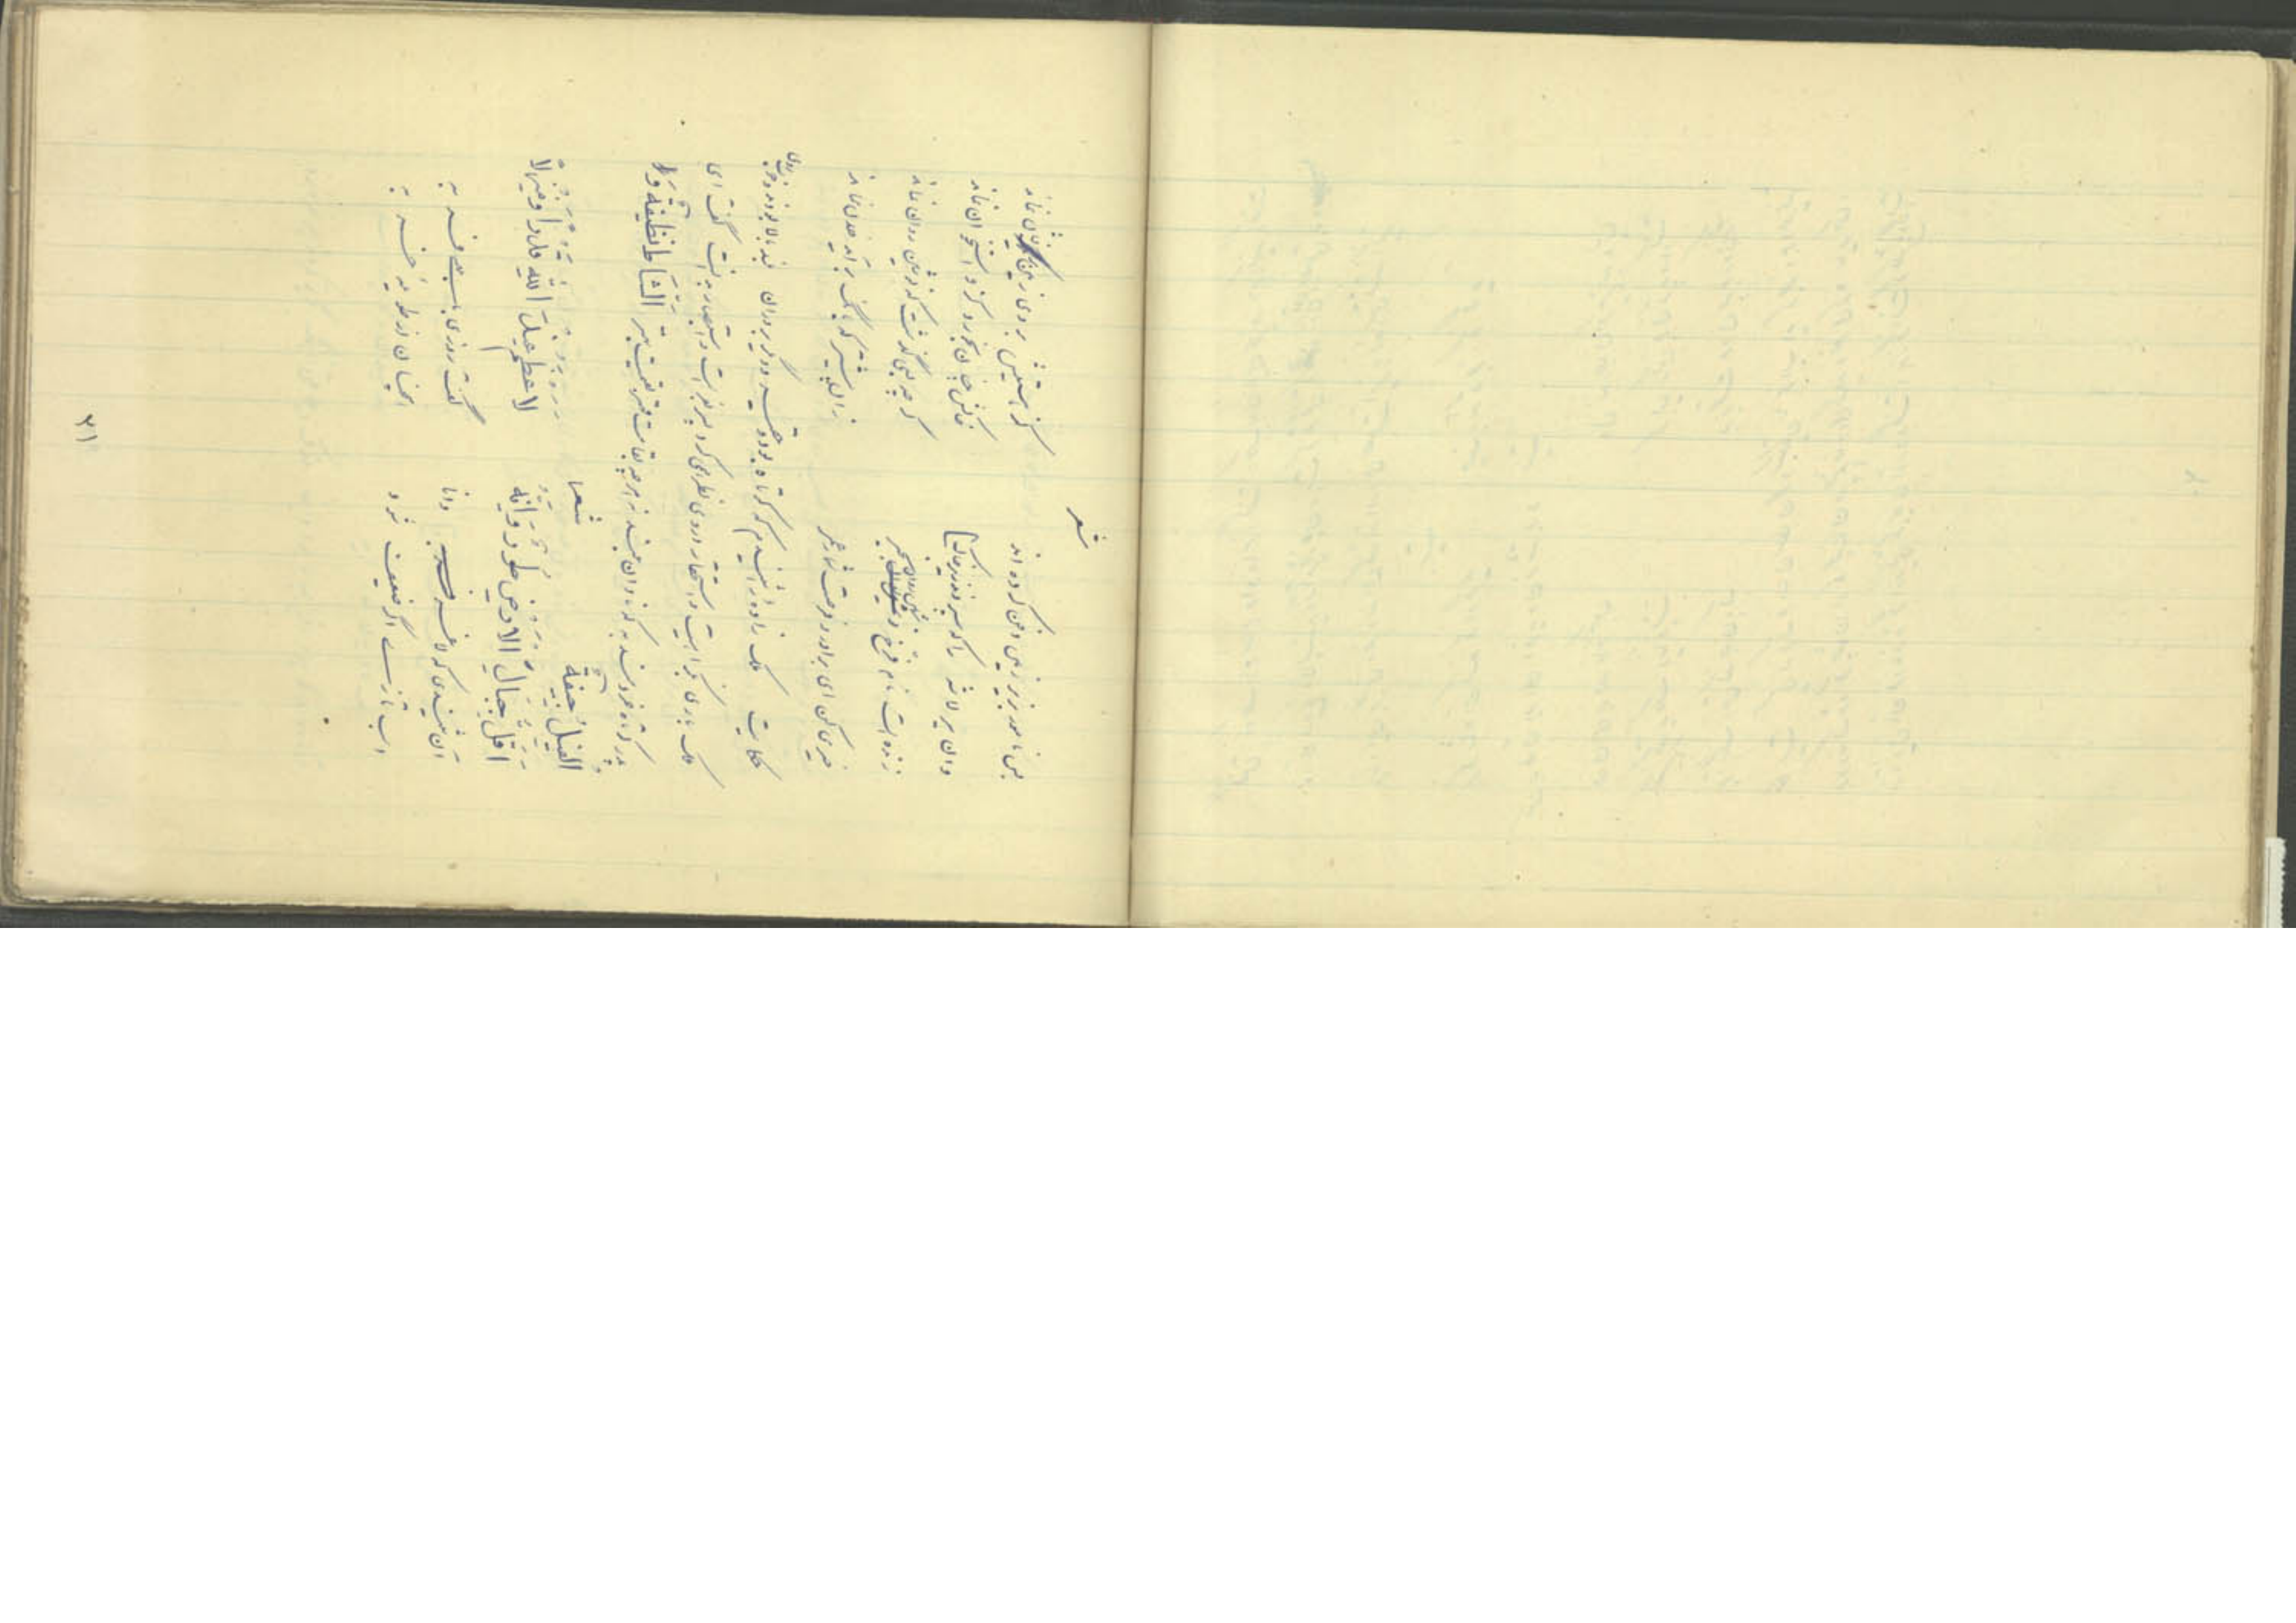 شعر
بس نامور بزیر زمین دفن کرده اند کز هستیش بروی زمین نشان نماند
وان پیر لاشه را که سپردند زیر خاک خاکش چنان بخورد کزو استخوان نماند
زنده است نام فرخ نوشیروان بخیر گرچه بسی گذشت که نوشین روان نماند
خیری کن ای برادر و غنیمت شمار عمر زان پیشتر که بانگ برآید فلان نماند
حکایت ملک زاده را شنیدم که کوتاه بود و حقیر و دیگر برادران بلند بالا بودند و خوب روی
ملک باری بکراهیت و استحقار در وی نظر می کرد پسر بفراست و استبصار دریافت گفت ای
پدر کوتاه خردمند به که نادان بلند نه هر چه بقامت مهتر بقیمت بهتر الشاة نظیفة و
الفیل جیفة شعر
اقل جبال الارض طور و انه لاعظم عند الله قدرا و منزلا
آن شنیدی که لاغری دانا گفت روزی بابلهی فربه
اسب تازی اگر ضعیف بود همچنان از طویله خر به
۳۱